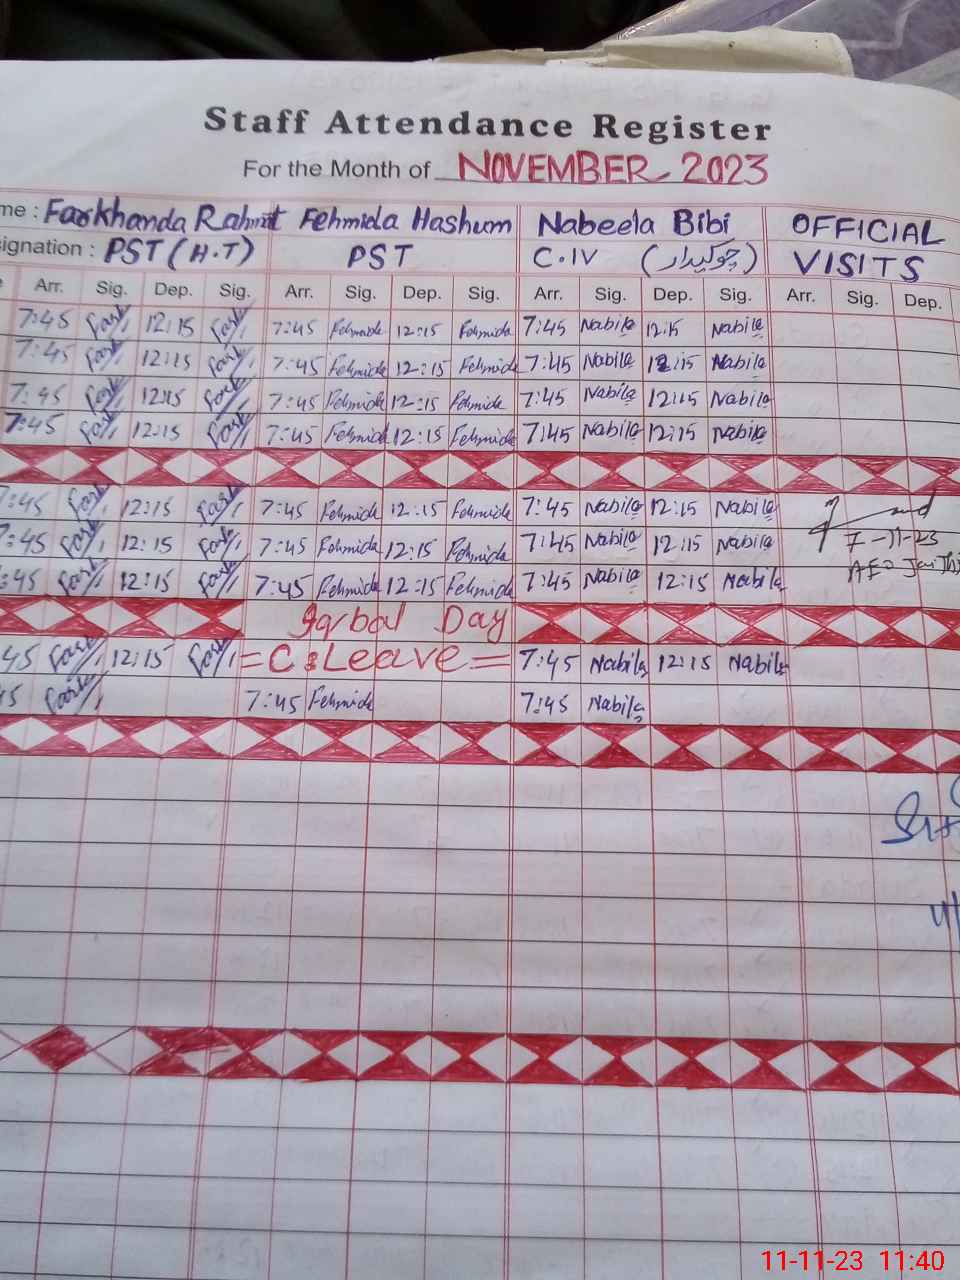 Staff Attendance Register
For the Month of NOVEMBER 2023
me : Farkhanda Rahmt Fehmida Hashum Nabeela Bibi OFFICIAL
signation : PST (H.T) PST C.IV (چوکیدار) VISITS
Arr. Sig. Dep. Sig. Arr. Sig. Dep. Sig. Arr. Sig. Dep. Sig. Arr. Sig. Dep.
7:45 Fark 12:15 Fark 7:45 Fehmida 12:15 Fehmida 7:45 Nabila 12:15 Nabila
7:45 Fark 12:15 Fark 7:45 Fehmida 12:15 Fehmida 7:45 Nabila 12:15 Nabila
7:45 Fark 12:15 Fark 7:45 Fehmida 12:15 Fehmida 7:45 Nabila 12:15 Nabila
7:45 Fark 12:15 Fark 7:45 Fehmida 12:15 Fehmida 7:45 Nabila 12:15 Nabila
7:45 Fark 12:15 Fark 7:45 Fehmida 12:15 Fehmida 7:45 Nabila 12:15 Nabila
7:45 Fark 12:15 Fark 7:45 Fehmida 12:15 Fehmida 7:45 Nabila 12:15 Nabila 7-11-23
:45 Fark 12:15 Fark 7:45 Fehmida 12:15 Fehmida 7:45 Nabila 12:15 Nabila AEO
Iqbal Day
45 Fark 12:15 Fark = C.Leave = 7:45 Nabila 12:15 Nabila
45 Fark 7:45 Fehmida 7:45 Nabila
11-11-23 11:40